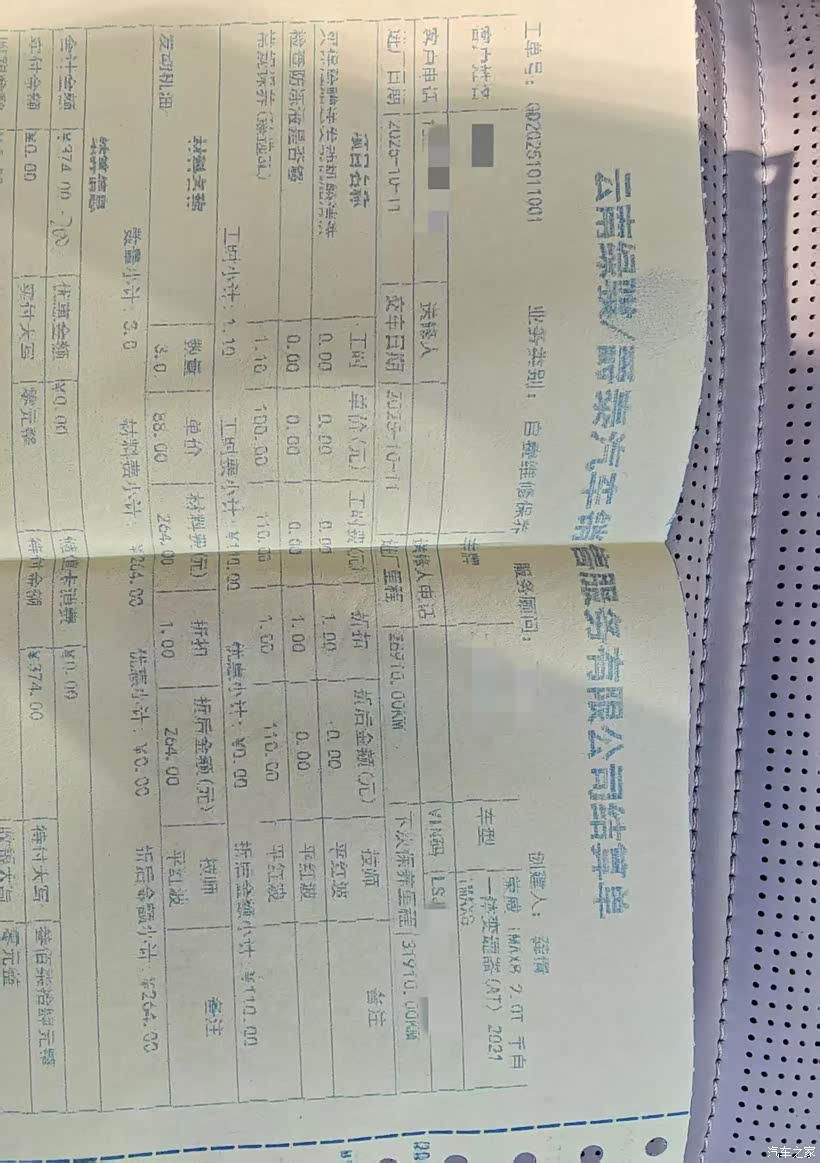 云南绿骏/露秦汽车销售服务有限公司结算单
工单号: GD20251011001 业务类别: 自费维修保养 服务顾问: 创建人:
客户姓名 车牌 车型 荣威 iMAX8 2.0T 手自一体变速器(AT) 2021
客户电话 送修人 送修人电话 VIN码 LSJ
进厂日期 2025-10-11 交车日期 2025-10-11 进厂里程 26910.00KM 下次保养里程 31910.00KM
项目名称 工时 单价(元) 工时费(元) 折扣 折后金额(元) 技师 备注
0.00 0.00 0.00 1.00 0.00 平红波
检查防冻液是否够 0.00 0.00 0.00 1.00 0.00 平红波
常规保养 1.10 100.00 110.00 1.00 110.00 平红波
工时小计: 1.10 工时费小计: ¥110.00 优惠小计: ¥0.00 折后金额小计: ¥110.00
材料名称 数量 单价 材料费(元) 折扣 折后金额(元) 技师 备注
发动机油 3.0 88.00 264.00 1.00 264.00 平红波
数量小计: 3.0 材料费小计: ¥264.00 优惠小计: ¥0.00 折后金额小计: ¥264.00
结算信息
合计金额 ¥374.00 -200 优惠金额 ¥0.00 储值卡消费 ¥0.00
实付金额 ¥0.00 实付大写 零元整 待付金额 ¥374.00 待付大写 叁佰柒拾肆元整
零元整
汽车之家